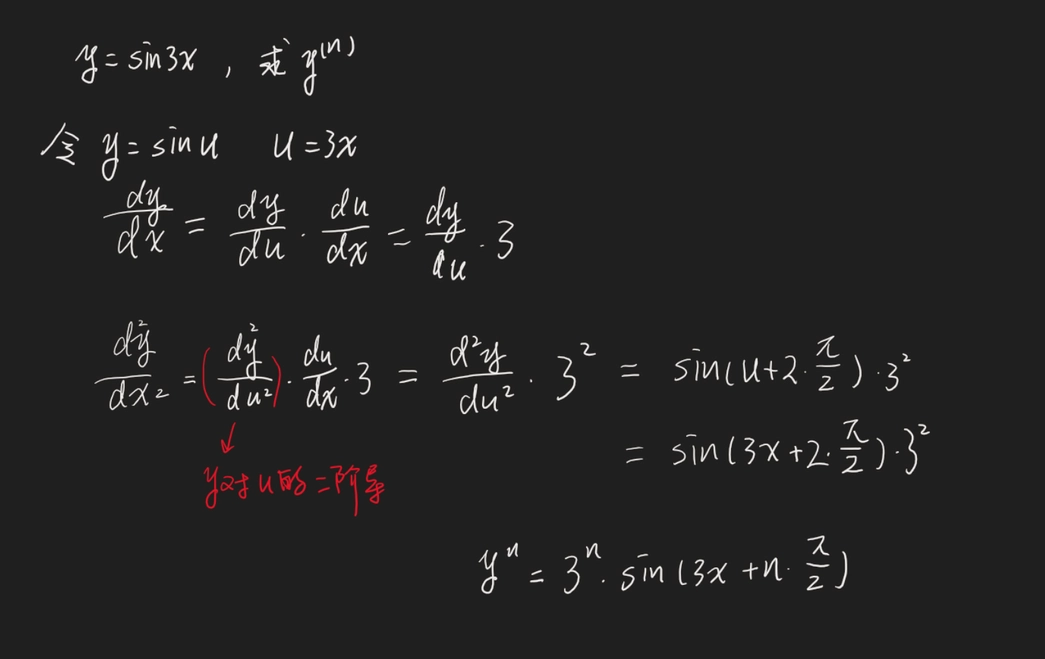 y = sin3x , 求 y⁽ⁿ⁾
令 y = sin u u = 3x
dy/dx = dy/du · du/dx = dy/du · 3
d²y/dx² = (d²y/du²) · du/dx · 3 = d²y/du² · 3² = sin(u+2·π/2)·3²
= sin(3x+2·π/2)·3²
y对u的二阶导
yⁿ = 3ⁿ · sin(3x+n·π/2)